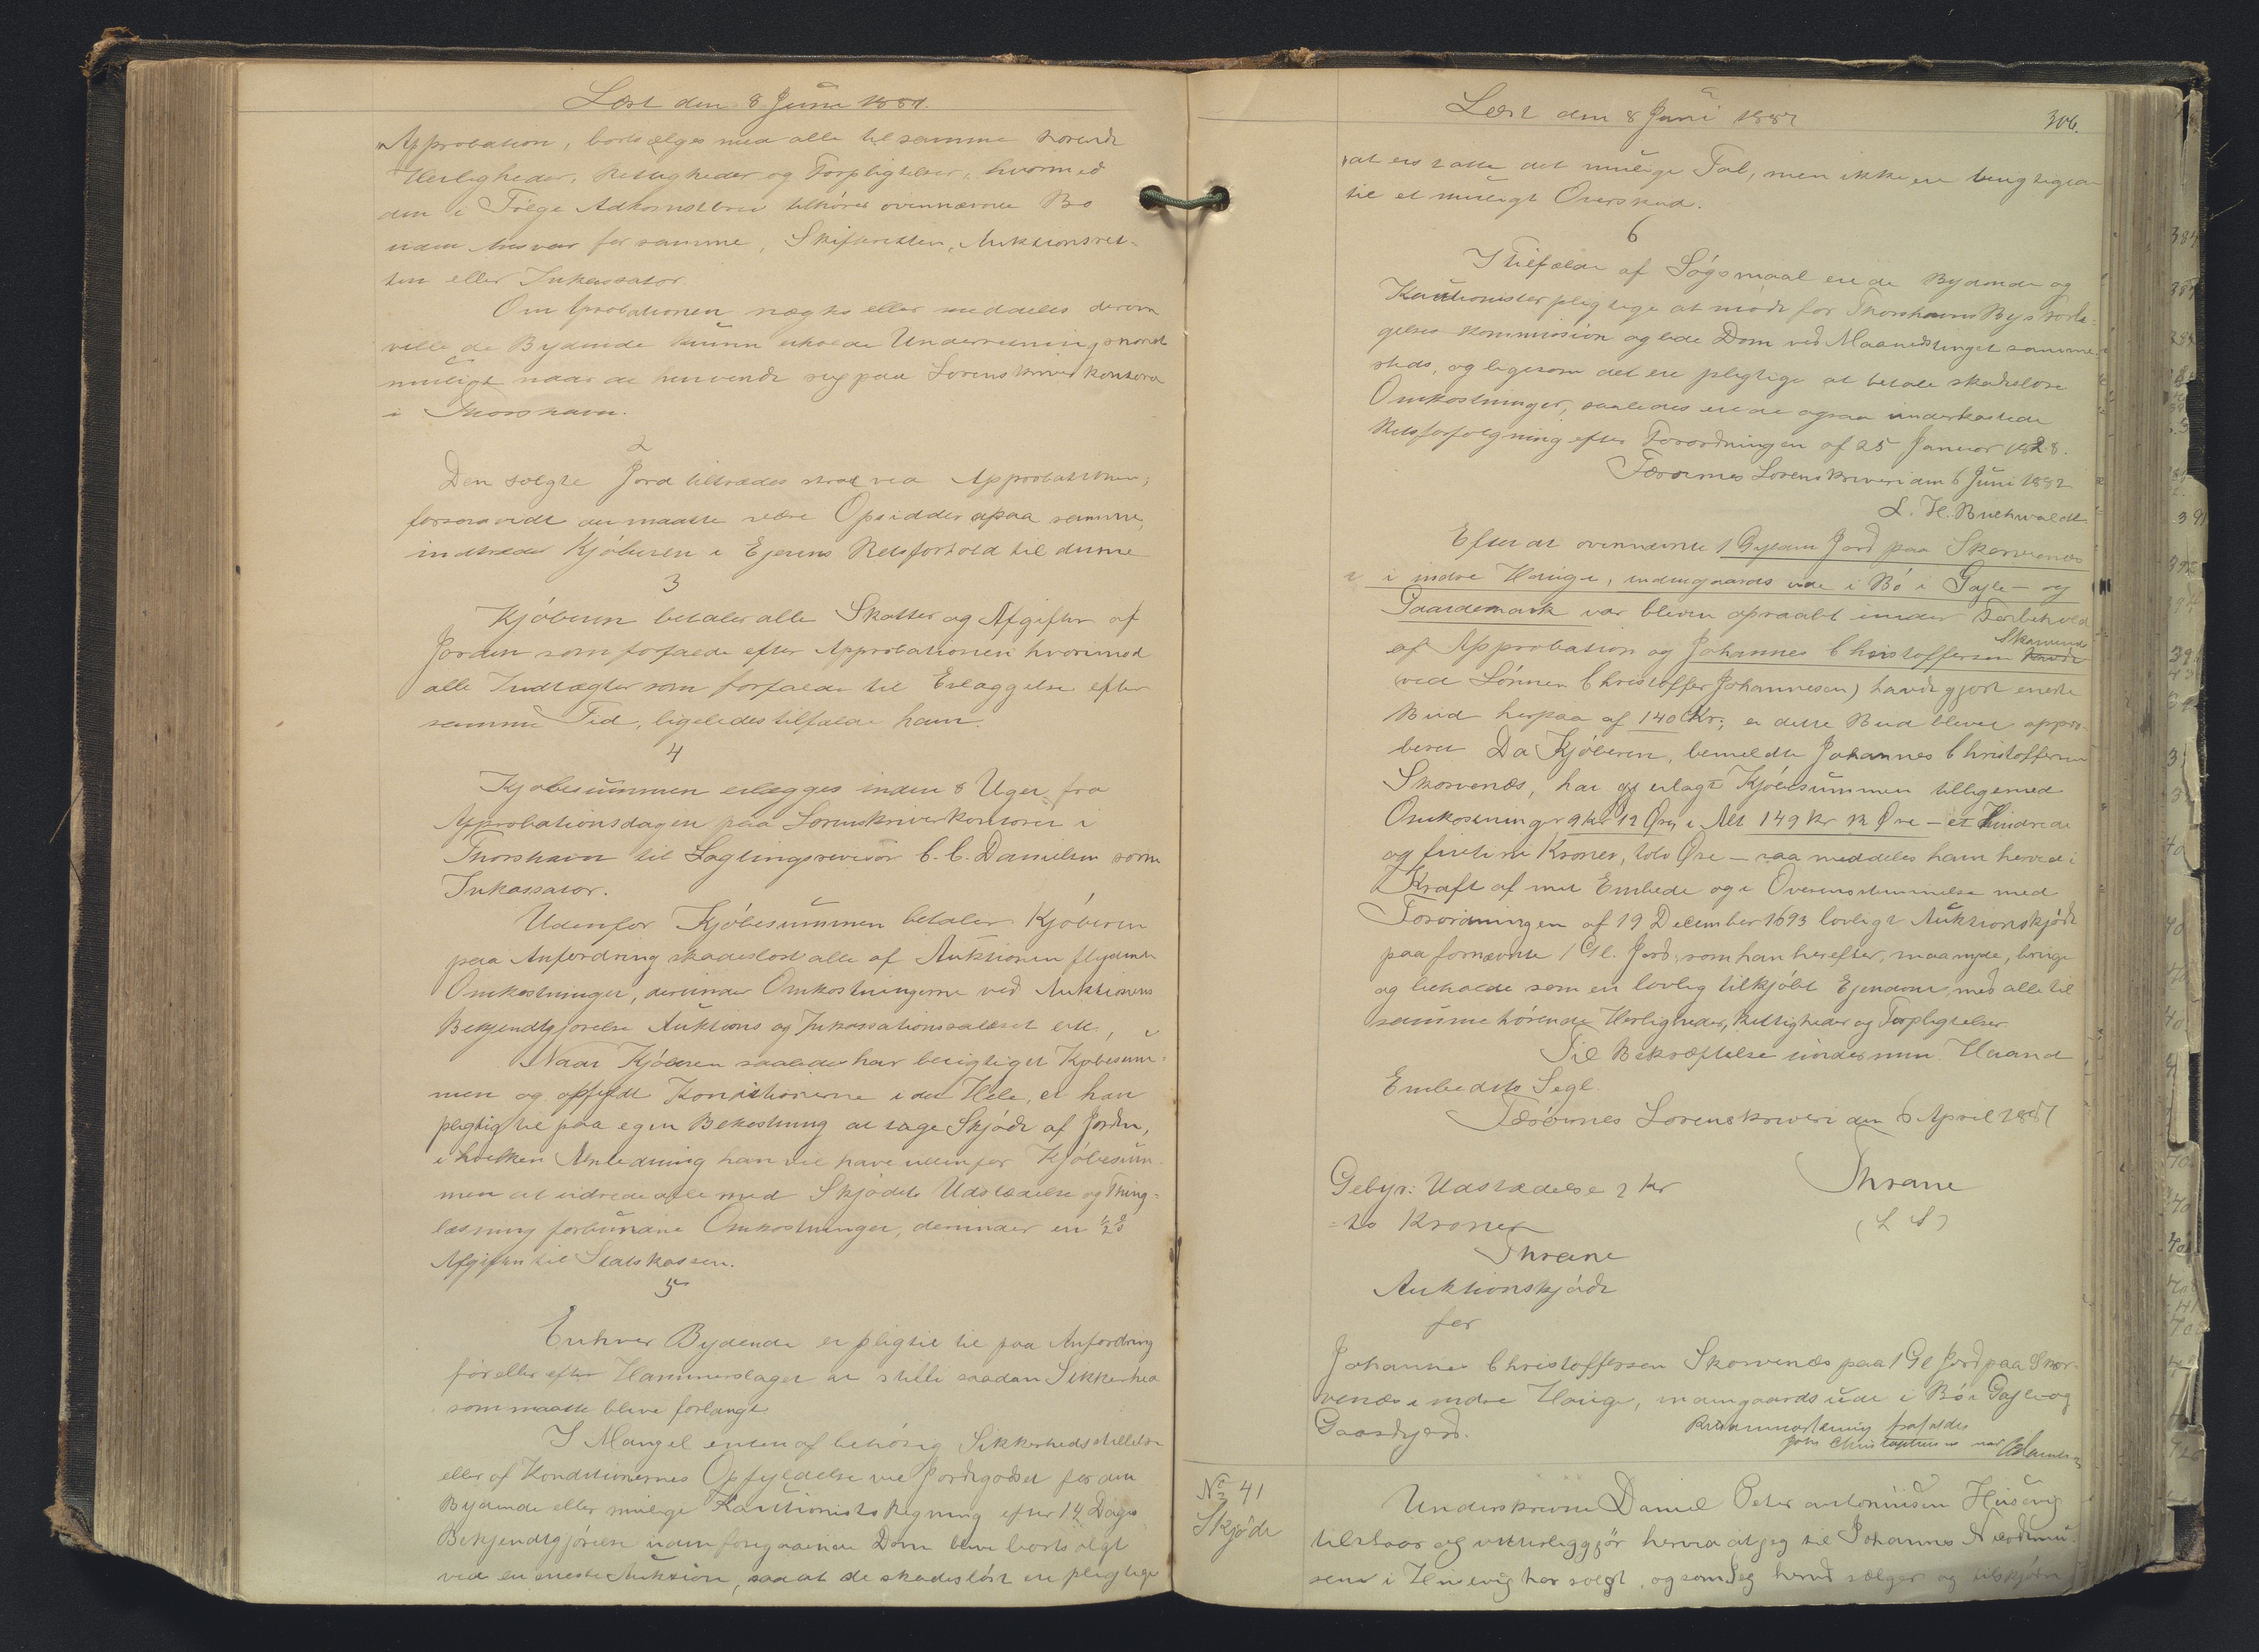 Læst den 8 Juni 1887.
Approbation, bortsælges med alle til samme hørende
Herligheder, Rettigheder og Forpligtelser, hvormed
den i Følge Adkomstbrev tilhører ovennævnte Bo
uden Ansvar for samme, Skifteretten, Auktionsret-
ten eller Inkassator.
Om Approbationen nægtes eller meddeles derom
ville de Bydende kunne erholde Underretning snarest
muligt naar de henvende sig paa Sorenskriverkontoret
i Thorshavn.
2
Den solgte Jord tiltrædes strax ved Approbationen,
forsaavidt der maatte være Opsidder paa samme,
indtræder Kjøberen i Ejerens Retsforhold til denne
3
Kjøberen betaler alle Skatter og Afgifter af
Jorden som forfalde efter Approbationen hvorimod
alle Indtægter som forfalde til Erlæggelse efter
samme Tid, ligeledes tilfalde ham.
4
Kjøbesummen erlægges inden 8 Uger fra
Approbationsdagen paa Sorenskriverkontoret i
Thorshavn til Lagtingsrevisor C. C. Danielsen som
Inkassator.
Udenfor Kjøbesummen betaler Kjøberen
paa Anfordring skadesløst alle af Auktionen flydende
Omkostninger, derunder Omkostningerne ved Auktionens
Bekjendtgjørelse Auktions og Inkassationssalæret etc.,
Naar Kjøberen saaledes har berigtiget Kjøbesum-
men og opfyldt Konditionerne i det Hele, er han
pligtig til paa egen Bekostning at tage Skjøde af Jorden,
i hvilken Anledning han vil have udenfor Kjøbesum-
men at udrede alle med Skjødets Udstædelse og Thing-
læsning forbundne Omkostninger, derunder en ½ %
Afgiften til Statskassen.
5
Enhver Bydende er pligtil til paa Anfordring
før eller efter Hammerslaget at stille saadan Sikkerhed
som maatte blive forlangt.
I Mangel enten af behørig Sikkerhedsstillelse
eller af Konditionernes Opfyldelse vil Jordegodset for den
Bydende eller mulige Kautionists Regning efter 14 Dages
Bekjendtgjørelse uden foregaaende Dom blive bortsolgt
ved en eneste Auktion, saa at de skadesløst ere pligtige
Læst den 8 Juni 1887
306.
at erstatte det mulige Tab, men ikke ere berigtigede
til et muligt Overskud.
6
I Tilfælde af Søgsmaal ere de Bydende og
Kautionister pligtige at møde for Thorshavns Bys Forli-
gelses kommission og lide Dom ved Maanedstinget samme-
steds, og ligesom det ere pligtige at betale skadesløse
Omkostninger, saaledes ere de ogsaa underkastede
Retsforfølgning efter Forordningen af 25 Januar 1828.
Færøernes Sorenskriveri den 6 Juni 1882
L. H. Buchwaldt
Efter at ovennævnte 1 Gylden Jord paa Skarvenæs
i indre Hauge, indengaards ude i Bø i Gajle- og
Gaardemark var bleven opraabt under Forbehold
af Approbation og Johannes Christoffersen Skarvenæs
(ved Sønnen Christoffer Johannesen) havde gjort eneste
Bud herpaa af 140 Kr, er dette Bud blevet appro-
beret Da Kjøberen, bemeldte Johannes Christoffersen
Skorvenæs, har erlagt Kjøbesummen tilligemed
Omkostninger 9 Kr 12 Øre, i Alt 149 Kr 12 Øre - et Hundrede
og firti ni Kroner, tolv Øre - saa meddeles ham herved i
Kraft af mit Embede og i Overensstemmelse med
Forordningen af 19 December 1693 lovligt Auktionsskjøde
paa fornævnte 1 Gl. Jord, som han herefter, maa nyde, bruge
og beholde som en lovlig tilkjøbt Ejendom, med alle til
samme hørende Herligheder, Rettigheder og Forpligtelser.
Til Bekræftelse under min Haand
Embedets Segl.
Færøernes Sorenskriveri den 6 April 1887
Thrane
(L S)
Gebyr: Udstædelse 2 Kr
= to Kroner
Thrane
Auktionsskjøde
for
Johannes Christoffersen Skorvenæs paa 1 Gl Jord paa Skor-
venæs i indre Hauge, indengaards ude i Bø i Gajle og
Gaardejord.
No 41
Skjøde
Underskrevne Daniel Peter Antoniusen Husevig
tilstaar og vitterliggjør herved at jeg til Johannes
sen i Husevig har solgt, og som jeg herved sælger og tilskjøder